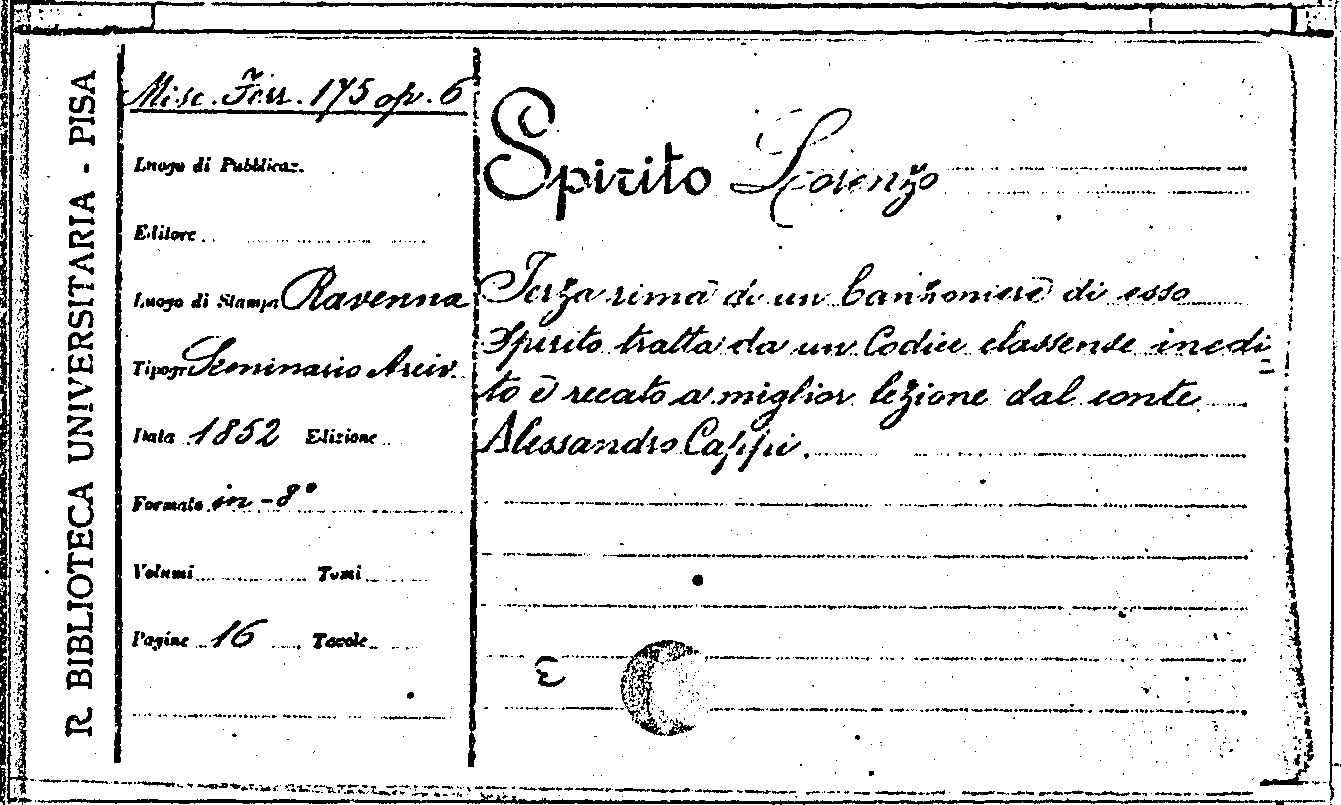 R. BIBLIOTECA UNIVERSITARIA - PISA
Misc. Ferr. 175 op. 6
Luogo di Pubblicaz.
Editore
Luogo di Stampa Ravenna
Tipogr. Seminario Arciv.
Data 1852 Edizione
Formato in-8°
Volumi Tomi
Pagine 16 Tavole
Spirito Lorenzo
Terza rima di un Canzoniere di esso
Spirito tratta da un Codice classense inedi
to e recato a miglior lezione dal conte
Alessandro Cappi.